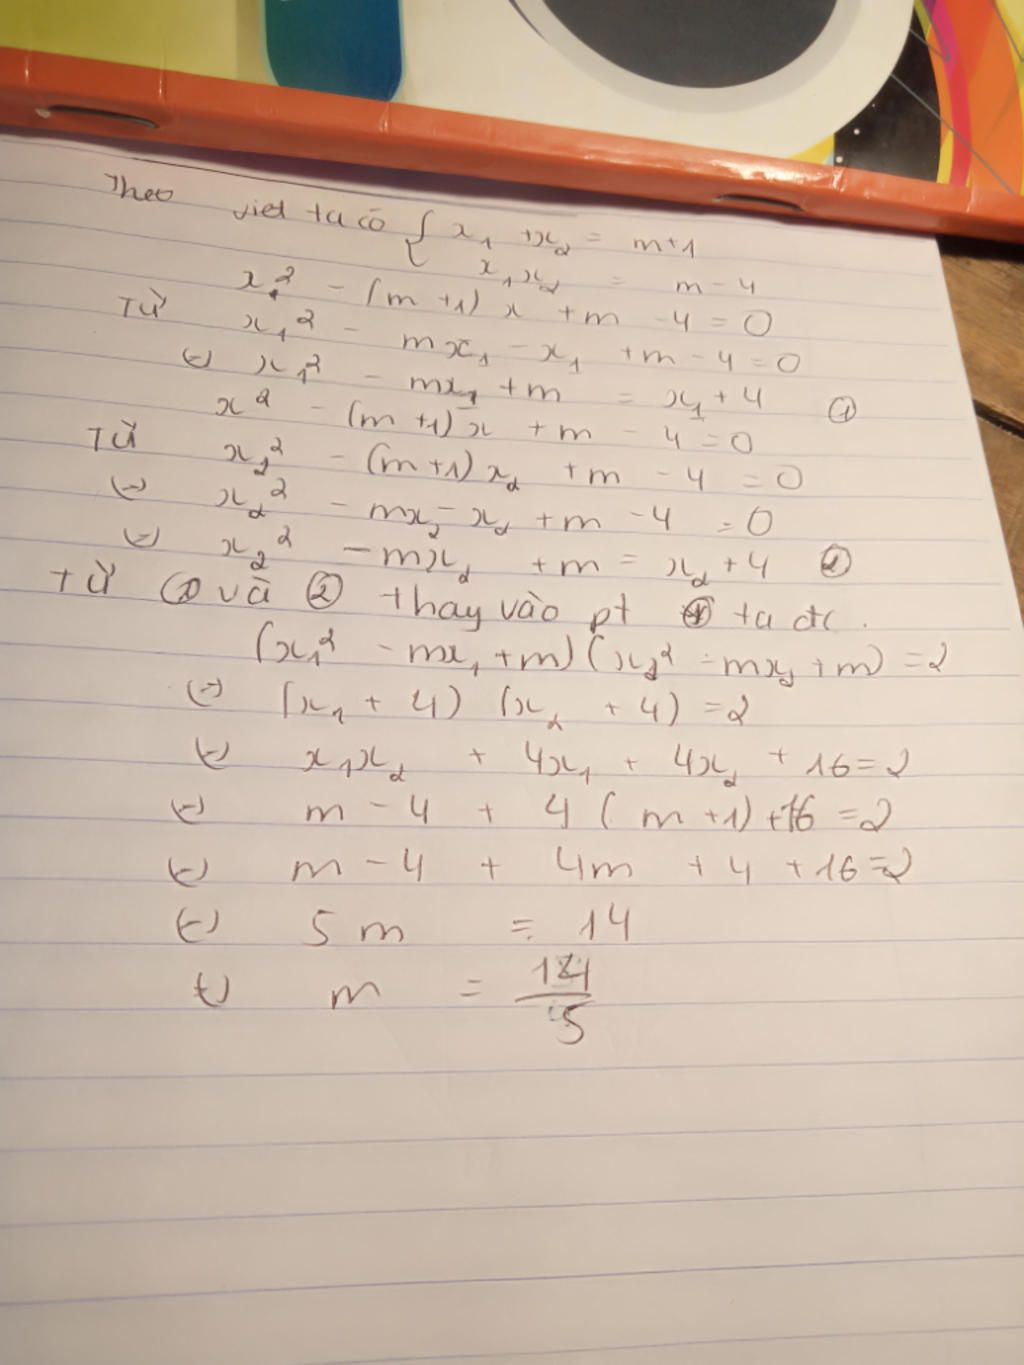 Theo viet ta có { x₁ + x₂ = m+1
x₁x₂ = m - 4
x² - (m+1) x + m - 4 = 0
Từ x₁² - mx₁ - x₁ + m - 4 = 0
⇔ x₁² - mx₁ + m = x₁ + 4 ①
x² - (m+1) x + m - 4 = 0
Từ x₂² - (m+1) x₂ + m - 4 = 0
⇔ x₂² - mx₂ - x₂ + m - 4 = 0
⇔ x₂² - mx₂ + m = x₂ + 4 ②
Từ ① và ② thay vào pt ta đc.
(x₁² - mx₁ + m) (x₂² - mx₂ + m) = 2
⇔ (x₁ + 4) (x₂ + 4) = 2
⇔ x₁x₂ + 4x₁ + 4x₂ + 16 = 2
⇔ m - 4 + 4 (m+1) + 16 = 2
⇔ m - 4 + 4m + 4 + 16 = 2
⇔ 5m = 14
⇔ m = 14/5